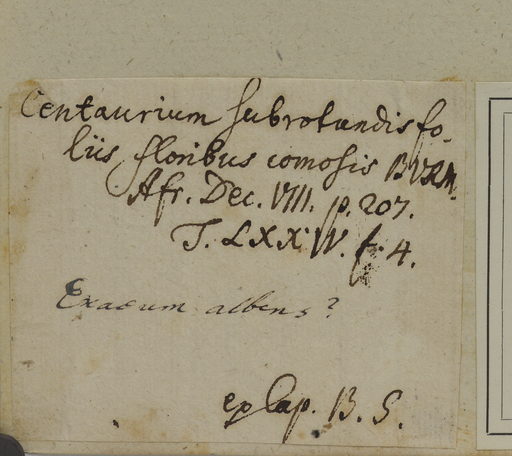 Centaurium subrotundis fo-
liis floribus comosis BURM.
Afr. Dec. VIII. p. 207.
T. LXXIV. f. 4.
Exacum albens?
ex Cap. B. S.